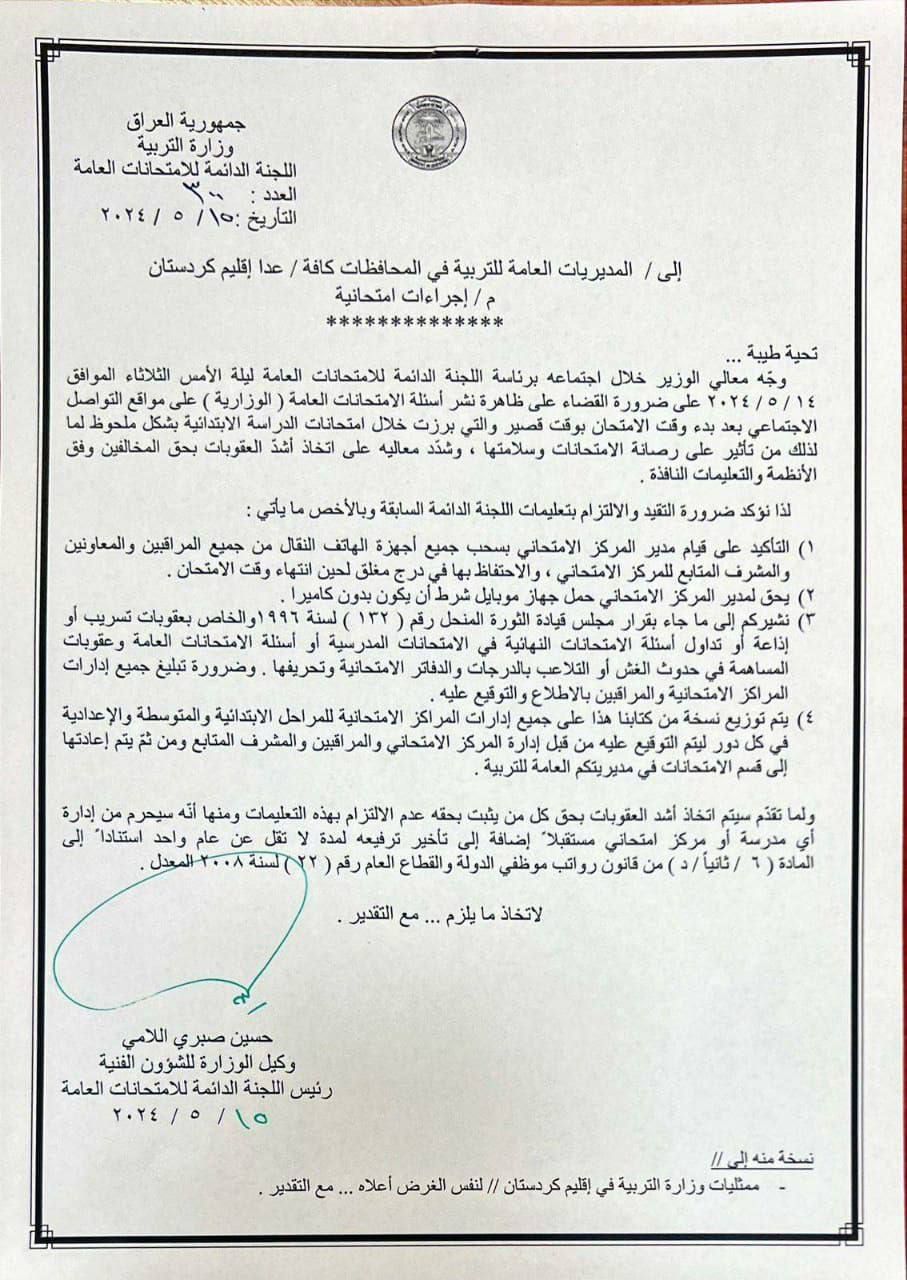 جمهورية العراق
وزارة التربية
اللجنة الدائمة للامتحانات العامة
العدد : ٣٠٠
التأريخ : ١٥ / ٥ / ٢٠٢٤
إلى / المديريات العامة للتربية في المحافظات كافة / عدا إقليم كردستان
م / إجراءات امتحانية
**************
تحية طيبة ...
وجّه معالي الوزير خلال اجتماعه برئاسة اللجنة الدائمة للامتحانات العامة ليلة الأمس الثلاثاء الموافق
١٤ / ٥ / ٢٠٢٤ على ضرورة القضاء على ظاهرة نشر أسئلة الامتحانات العامة ( الوزارية ) على مواقع التواصل
الاجتماعي بعد بدء وقت الامتحان بوقت قصير والتي برزت خلال امتحانات الدراسة الابتدائية بشكل ملحوظ لما
لذلك من تأثير على رصانة الامتحانات وسلامتها ، وشدّد معاليه على اتخاذ أشدّ العقوبات بحق المخالفين وفق
الأنظمة والتعليمات النافذة .
لذا نؤكد ضرورة التقيد والالتزام بتعليمات اللجنة الدائمة السابقة وبالأخص ما يأتي :
١) التأكيد على قيام مدير المركز الامتحاني بسحب جميع أجهزة الهاتف النقال من جميع المراقبين والمعاونين
والمشرف المتابع للمركز الامتحاني ، والاحتفاظ بها في درج مغلق لحين انتهاء وقت الامتحان .
٢) يحق لمدير المركز الامتحاني حمل جهاز موبايل شرط أن يكون بدون كاميرا .
٣) نشيركم إلى ما جاء بقرار مجلس قيادة الثورة المنحل رقم ( ١٣٢ ) لسنة ١٩٩٦والخاص بعقوبات تسريب أو
إذاعة أو تداول أسئلة الامتحانات النهائية في الامتحانات المدرسية أو أسئلة الامتحانات العامة وعقوبات
المساهمة في حدوث الغش أو التلاعب بالدرجات والدفاتر الامتحانية وتحريفها . وضرورة تبليغ جميع إدارات
المراكز الامتحانية والمراقبين بالاطلاع والتوقيع عليه .
٤) يتم توزيع نسخة من كتابنا هذا على جميع إدارات المراكز الامتحانية للمراحل الابتدائية والمتوسطة والإعدادية
في كل دور ليتم التوقيع عليه من قبل إدارة المركز الامتحاني والمراقبين والمشرف المتابع ومن ثمّ يتم إعادتها
إلى قسم الامتحانات في مديريتكم العامة للتربية .
ولما تقدّم سيتم اتخاذ أشد العقوبات بحق كل من يثبت بحقه عدم الالتزام بهذه التعليمات ومنها أنّه سيحرم من إدارة
أي مدرسة أو مركز امتحاني مستقبلاً إضافة إلى تأخير ترفيعه لمدة لا تقل عن عام واحد استناداً إلى
المادة ( ٦ / ثانياً / د ) من قانون رواتب موظفي الدولة والقطاع العام رقم ( ٢٢ ) لسنة ٢٠٠٨ المعدل .
لاتخاذ ما يلزم ... مع التقدير .
حسين صبري اللامي
وكيل الوزارة للشؤون الفنية
رئيس اللجنة الدائمة للامتحانات العامة
١٥ / ٥ / ٢٠٢٤
نسخة منه إلى //
- ممثليات وزارة التربية في إقليم كردستان // لنفس الغرض أعلاه ... مع التقدير .